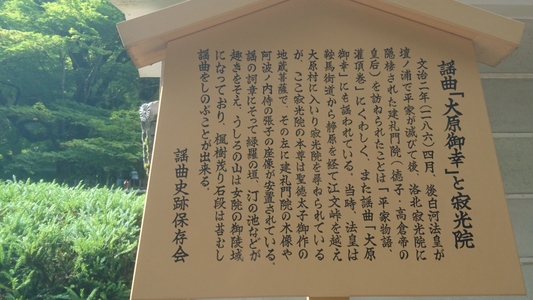 謡曲「大原御幸」と寂光院
文治二年(一一八六)四月、後白河法皇が
壇ノ浦で平家が滅びて後、洛北寂光院に
隠棲された建礼門院(徳子・高倉帝の
皇后)を訪ねられたことは「平家物語、
灌頂巻」にくわしく、また謡曲「大原
御幸」にも謡われている。当時、法皇は
鞍馬街道から静原を経て江文峠を越え
大原村に入いり寂光院を尋ねられている
が、ここ寂光院の本尊は聖徳太子御作の
地蔵菩薩で、その左に建礼門院の木像や
阿波ノ内侍の張子の座像が安置されている。
謡の詞章にそって緑羅の垣、汀の池などが
趣きをそえ、うしろの山は女院の御陵域
になっており、楓樹茂り石段は苔むし
謡曲をしのぶことが出来る。
謡曲史跡保存会